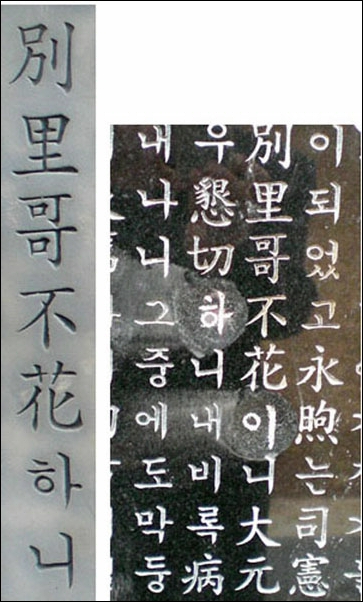 別里哥不花하니
이되었고永煦는司憲
別里哥不花이니大元
우懇切하니내비록病
내나니그중에도막둥